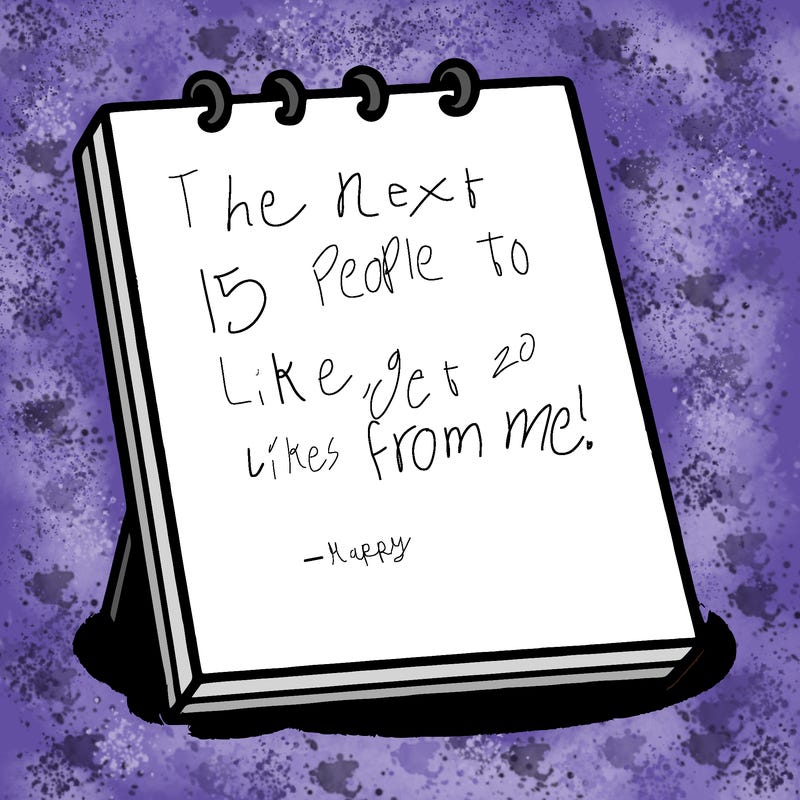 The next
15 PeoPle to
Like, get 20
Likes from me!
-HaPPY